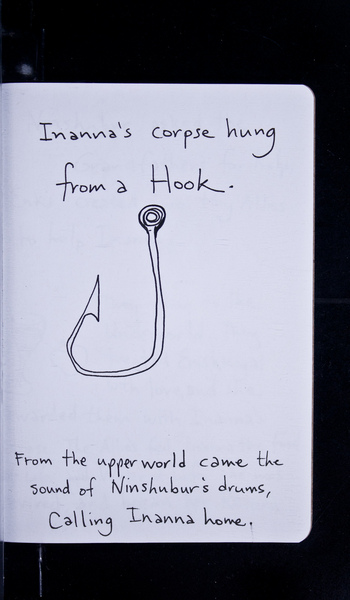 Inanna's corpse hung
from a Hook.
From the upperworld came the
sound of Ninshubur's drums,
Calling Inanna home.